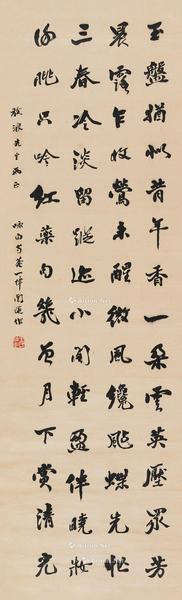 玉盤猶似昔午香一朵雲英壓眾芳
晨露乍收鶯未醒微風纔颭蝶先忙
三春冷淡留蹤迹小閣輕盈伴曉妝
謝朓只吟紅藥句幾曾月下賞清光
浪先生正
詠白芍藥一律闓運作